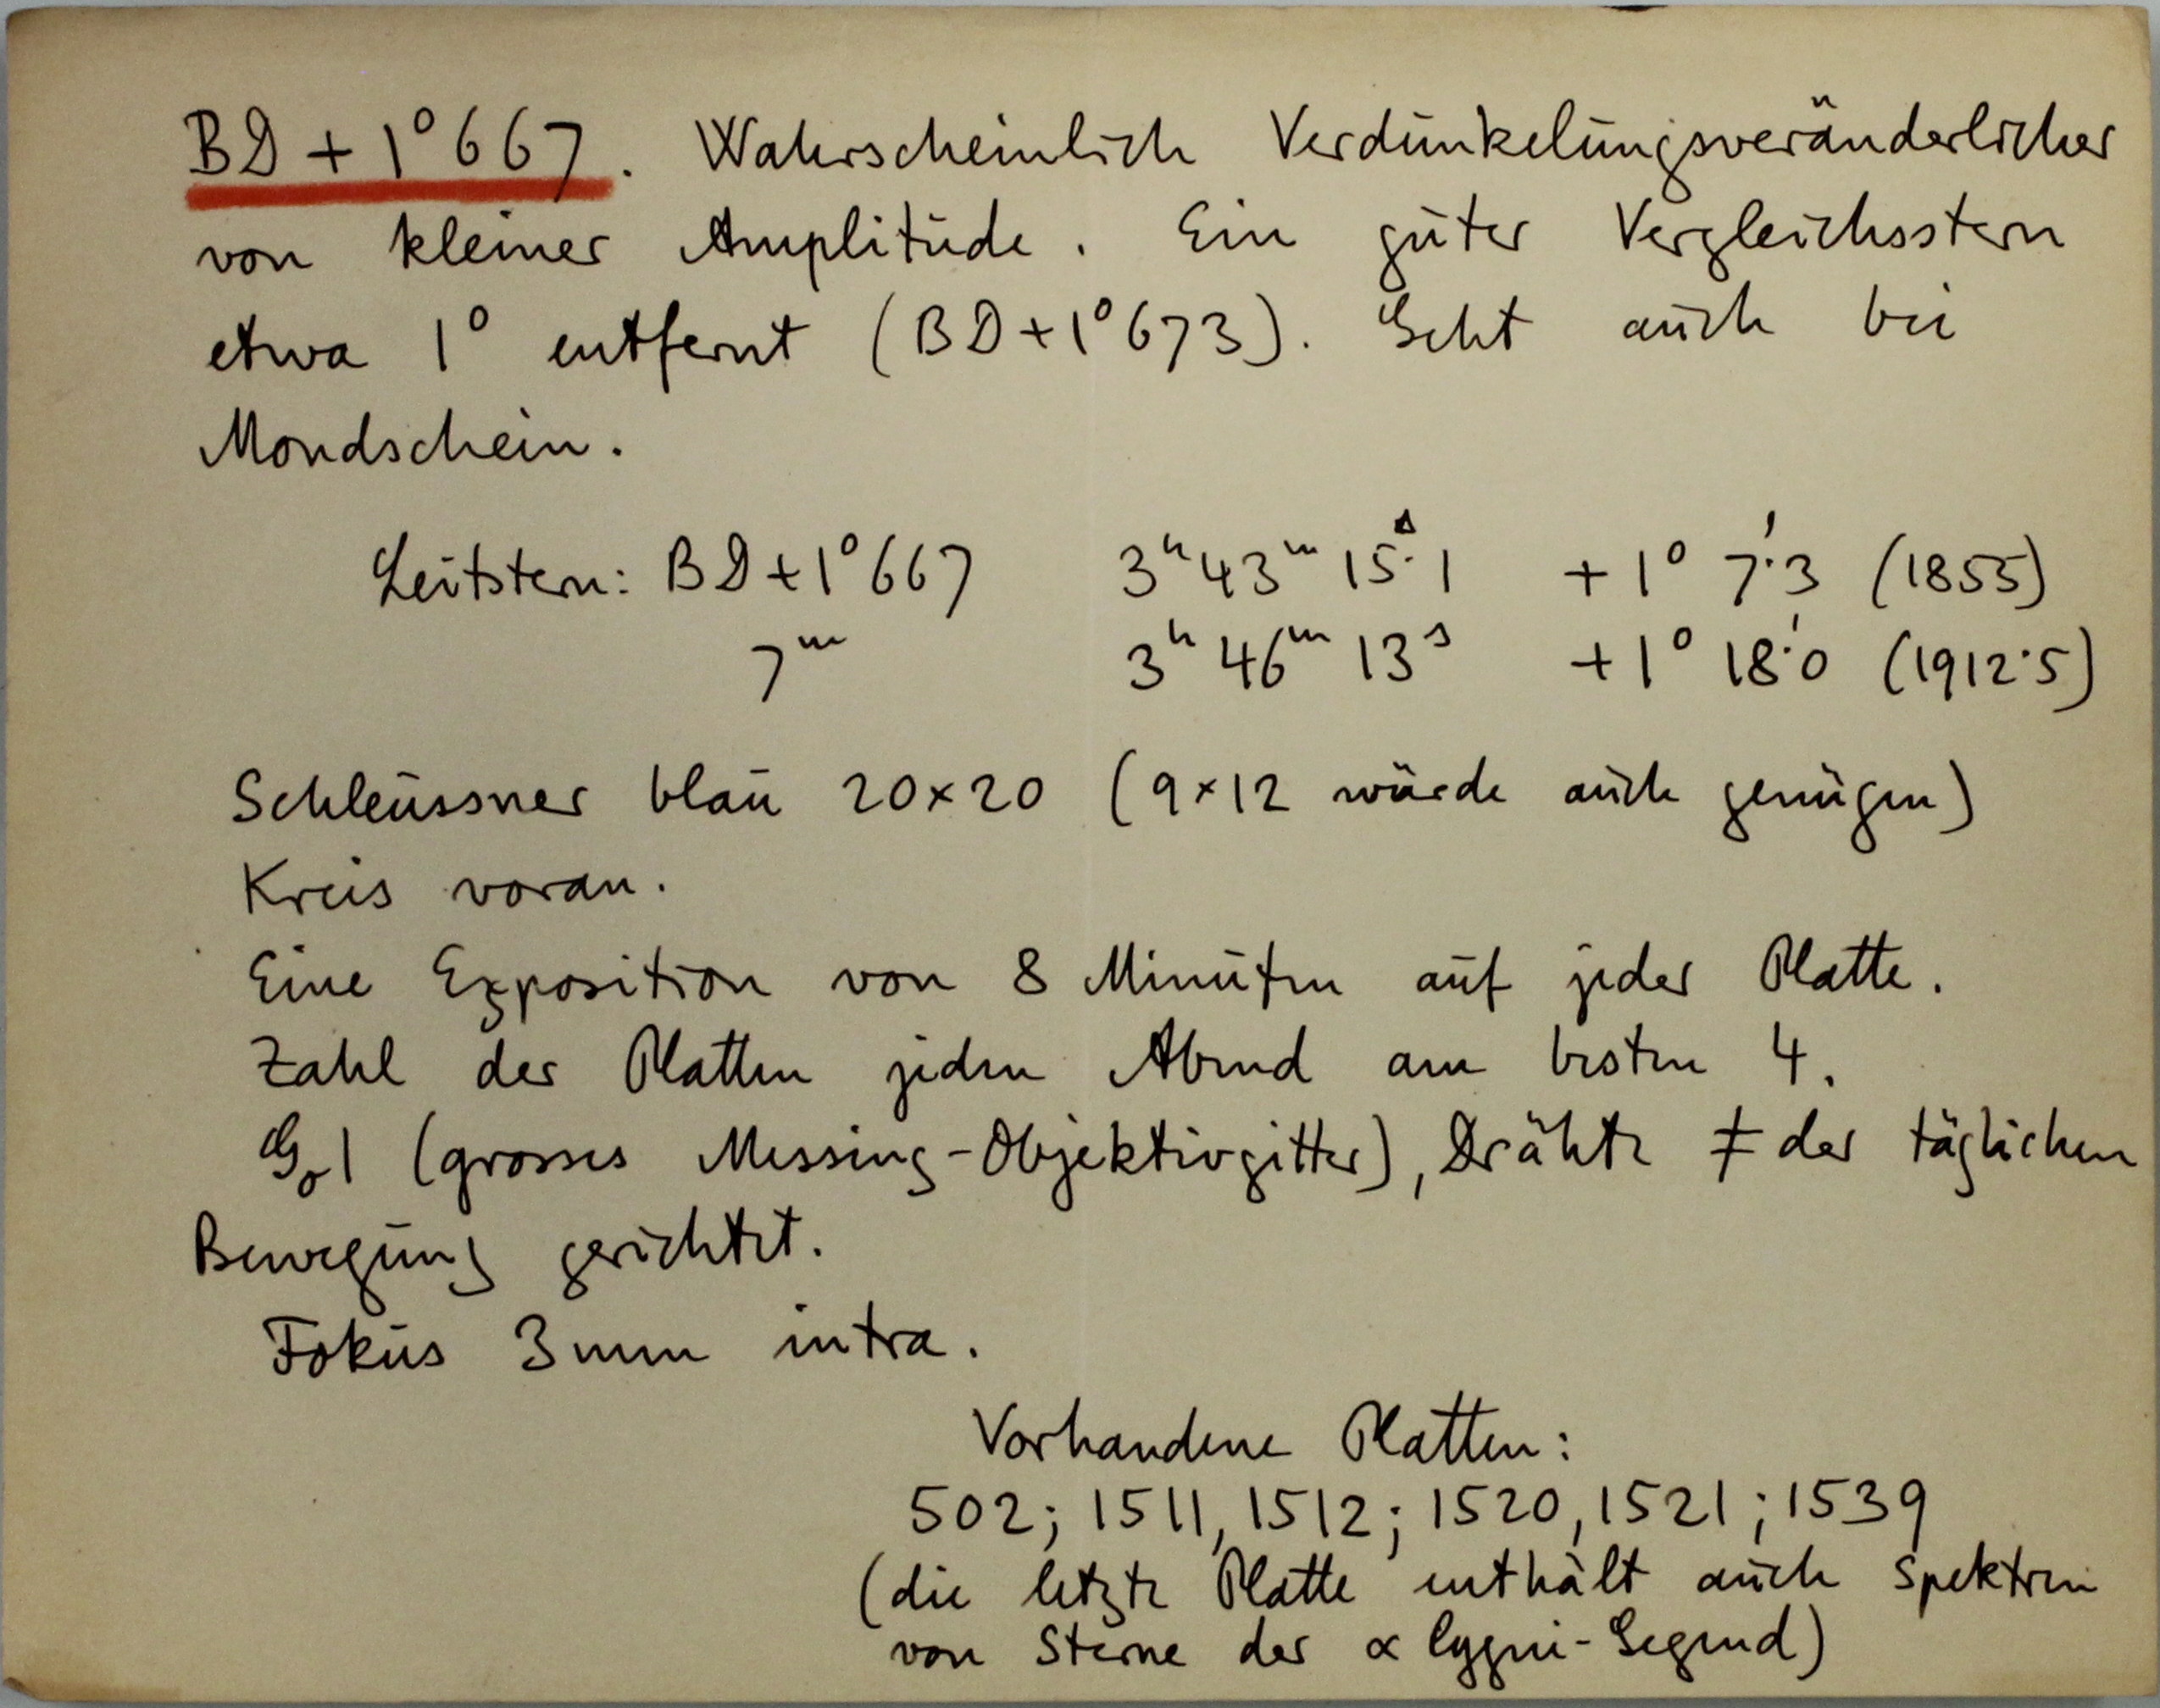 BD + 1° 667. Wahrscheinlich Verdunkelungsveränderlicher
von kleiner Amplitude. Ein guter Vergleichsstern
etwa 1° entfernt (BD+1°673). Geht auch bei
Mondschein.
Leitstern: BD+1°667 3ʰ 43ᵐ 15ˢ.1 +1° 7'.3 (1855)
7ᵐ 3ʰ 46ᵐ 13ˢ +1° 18'.0 (1912.5)
Schleussner blau 20×20 (9×12 würde auch genügen)
Kreis voran.
Eine Exposition von 8 Minuten auf jeder Platte.
Zahl der Platten jeden Abend am besten 4.
(grosses Messing-Objektivgitter), Drähte ≠ der täglichen
Bewegung gerichtet.
Fokus 3 mm intra.
Vorhandene Platten:
502; 1511, 1512; 1520, 1521; 1539
(die letzte Platte enthält auch Spektren
von Sterne der α Cygni-Gegend)